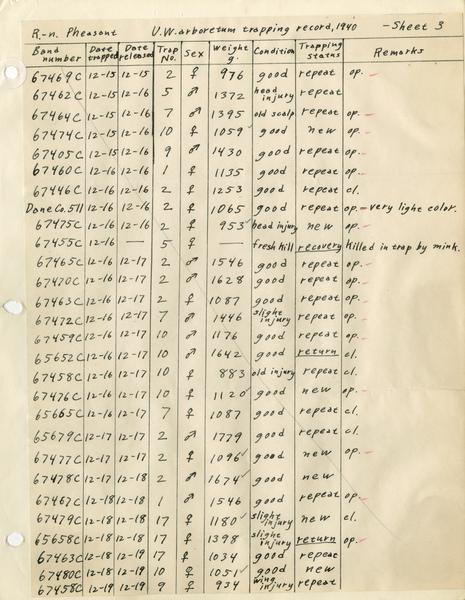 R.-n. Pheasant U.W. arboretum trapping record, 1940 —Sheet 3
Band number Date trapped Date released Trap No. Sex Weight g. Condition Trapping Status Remarks
67469C 12-15 12-15 2 ♀ 976 good repeat op.
67462C 12-15 12-16 5 ♂ 1372 head injury repeat
67464C 12-15 12-16 7 ♂ 1395 old scalp repeat op.
67474C 12-15 12-16 10 ♀ 1059✓ good new op.
67405C 12-15 12-16 9 ♂ 1430 good repeat op.
67460C 12-16 12-16 1 ♀ 1135 good repeat op.
67446C 12-16 12-16 2 ♀ 1253 good repeat cl.
Dane Co. 511 12-16 12-16 2 ♀ 1065 good repeat op.—very light color.
67475C 12-16 12-16 2 ♀ 953✓ head injury new op.
67455C 12-16 — 5 ♀ — fresh kill recovery Killed in trap by mink.
67465C 12-16 12-17 2 ♂ 1546 good repeat op.
67470C 12-16 12-17 2 ♂ 1628 good repeat op.
67463C 12-16 12-17 2 ♀ 1087 good repeat op.
67472C 12-16 12-17 7 ♂ 1446 slight injury repeat op.
67459C 12-16 12-17 10 ♂ 1176 good repeat op.
65652C 12-16 12-17 10 ♂ 1642 good return cl.
67458C 12-16 12-17 10 ♀ 883 old injury repeat cl.
67476C 12-16 12-17 10 ♀ 1120✓ good new op.
65665C 12-16 12-17 7 ♀ 1087 good repeat cl.
65679C 12-17 12-17 2 ♂ 1779 good repeat cl.
67477C 12-17 12-17 2 ♀ 1096✓ good new op.
67478C 12-17 12-18 2 ♂ 1674✓ good new
67467C 12-18 12-18 1 ♂ 1546 good repeat op.
67479C 12-18 12-18 17 ♀ 1180✓ slight injury new cl.
65658C 12-18 12-18 17 ♀ 1398 slight injury return op.
67463C 12-18 12-19 17 ♀ 1034 good repeat
67480C 12-18 12-19 10 ♀ 1051✓ good new
67458C 12-19 12-19 9 ♀ 934 wing injury repeat